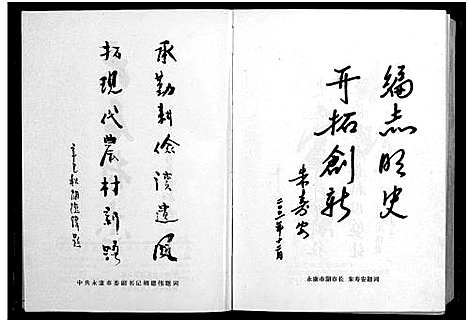 编志明史
开拓創新
朱寿安
二〇〇一年十二月
永康市副市长 朱寿安题词
承勤耕儉读遗風
拓現代農村新路
辛巳秋胡德伟题
中共永康市委副书记胡德伟题词